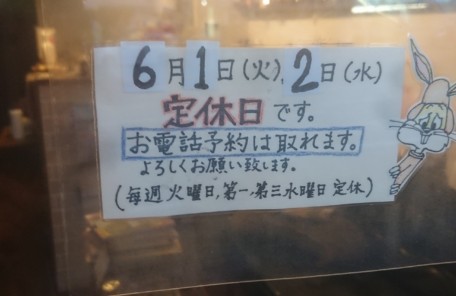 6月1日(火),2日(水)
定休日です。
お電話予約は取れます。
よろしくお願い致します。
(毎週火曜日,第一.第三水曜日定休)